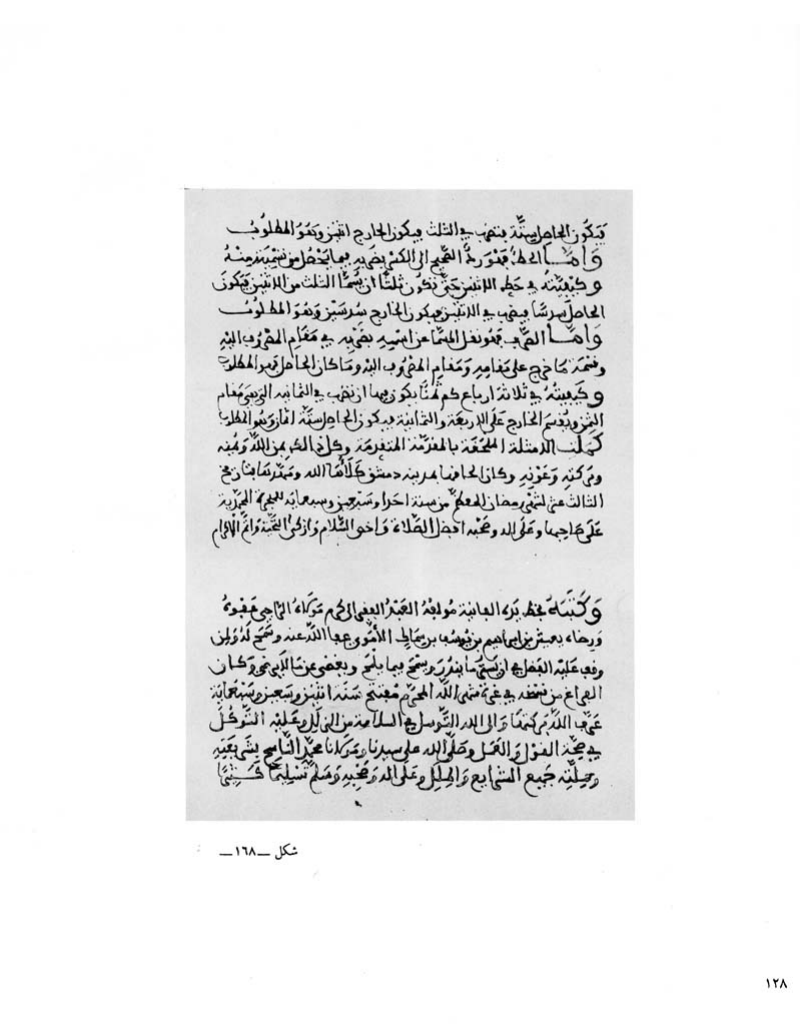 فيكون الحاصل ستة يضرب في الثلث فيكون الخارج اثنين وهو المطلوب
وأما الحط فهو رد الصحيح الى الكسر بضربه فيما يحصل من تسميته منه
وكيفيته في حط الاثنين حتى تكون ثلثا ان يسما الثلث من الاثنين فيكون
الحاصل سدسا فيضرب في الاثنين فيكون الخارج سدسين وهو المطلوب
وأما الصرف فهو نقل من اسم بضربه في مقام المصروف اليه
وقسمة ما خرج على مقامه ومقام المصروف اليه وما كان الحاصل فهو المطلوب
وكيفيته في ثلاثة ارباع كم ثمنا يكون فيها ان تضرب في الثمانية التي هي مقام
الثمن ويقسم الخارج على الاربعة والثمانية فيكون الحاصل ستة اثمان وهو المطلوب
كملت الامثلة الملحقة بالمقدمة المتقدمة وكل ذلك بمن الله ويمنه
وبركته وعونه وكان الحاقها بمدينة دمشق كلأها الله ومهد سابتاريخ
الثالث عشر لشهر رمضان المعظم من سنة احدا وسبعين وسبعماية للهجرة المحمدية
على صاحبها وعلى اله وصحبه افضل الصلاة واخص السلام وازكى التحية واتم الاكرام
وكتبه بخط يده الفانية مولفه العبد الفقير الى كرم مولاه الراجي عفوه
ورضاه يعيش بن ابراهيم بن يوسف بن سماك الأموي عفا الله عنه وسمح له ولمن
وقف عليه الفضل في ان يستر ما يندر ويسمح فيما يلمح ويغضي عن ما لا يرضى وكان
الفراغ من نسخه في غرة شهر الله المحرم مفتتح سنة اثنين وسبعين وسبعماية
عرف الله بركتها والى الله التوسل في السلامة من الزلل وعليه التوكل
في صحة القول والعمل وصلى الله على سيدنا ومولانا محمد الناسخ بشريعته
وملته جميع الشرايع والملل وعلى اله وصحبه وسلم تسليما كثيرا
شكل ــ١٦٨ــ
١٢٨